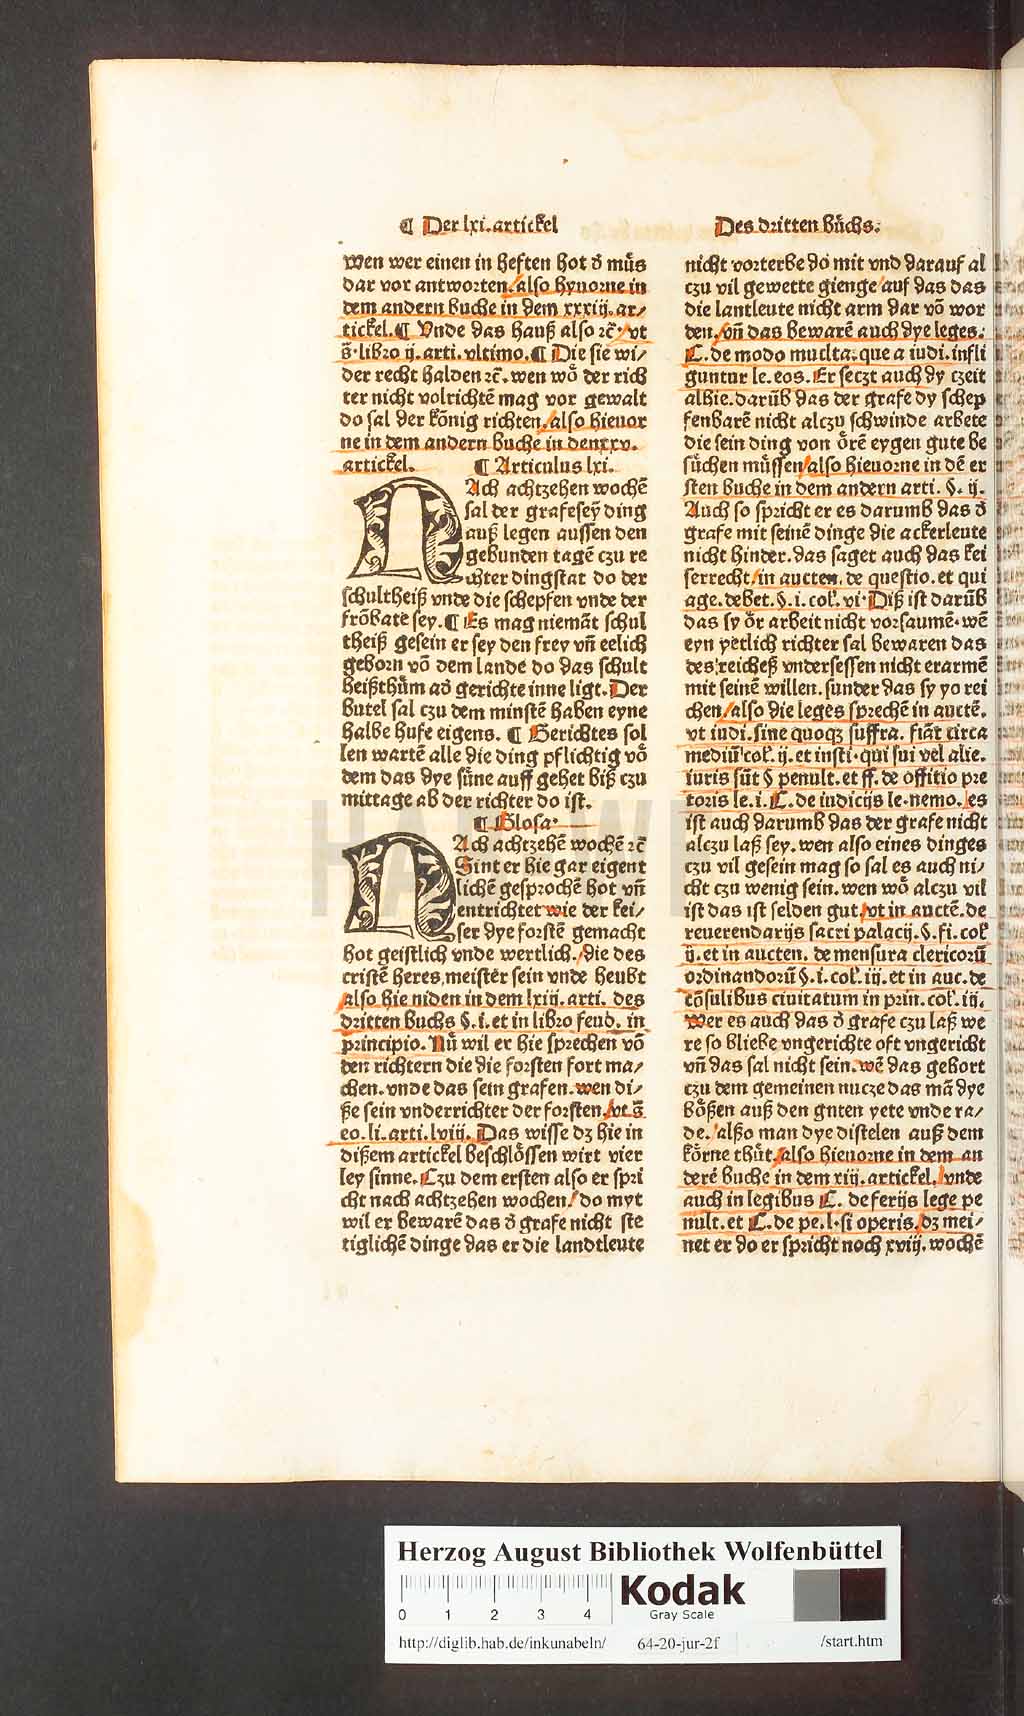 ¶ Der lxi. artickel
Des dritten bůchs.
wen wer einen in heften hot d̓ můs
dar vor antworten/also hyuorne in
dem andern buche in dem xxxiij. ar/
tickel. ¶ Vnde das hauß also ꝛc̄·/vt
s̄·libro ij. arti. vltimo. ¶ Die sie wi/
der recht halden ꝛc̄. wen wo̊ der rich
ter nicht volrichtē mag vor gewalt
do sal der kőnig richten/also hieuor
ne in dem andern buche in den xxv.
artickel.
¶ Articulus lxi.
NAch achtzehen wochē
sal der grafe seÿ ding
auß legen aussen den
gebunden tagē czu re
chter dingstat do der
schultheiß vnde die schepfen vnde der
frőbate sey. ¶ Es mag niemāt schul
theiß gesein er sey den frey vn̄ eelich
geborn vō dem lande do das schult
heißthům ad̓ gerichte inne ligt. Der
butel sal czu dem minstē haben eyne
halbe hufe eigens. ¶ Gerichtes sol
len wartē alle die ding pflichtig vo̊
dem das dye sůne auff gehet biß czu
mittage ab der richter do ist.
¶ Glosa·
NAch achtzehē wochē ꝛc̄
Sint er hie gar eigent
lichē gesprochē hot vn̄
entrichtet wie der kei/
ser dye forstē gemacht
hot geistlich vnde wertlich./die des
cristē heres meister sein vnde heubt
/also hie niden in dem lxiij. arti. des
dritten buchs §. i. et in libro feud. in
principio. Nů wil er hie sprechen vō
den richtern die die forsten fort ma/
chen. vnde das sein grafen. wen di/
ße sein vnderrichter der forsten/vt s̄
eo. li. arti. lviij. Das wisse dz hie in
dißem artickel beschlőssen wirt vier
ley sinne. Czu dem ersten also er spri
cht nach achtzehen wochen/do myt
wil er bewarē das d̓ grafe nicht ste
tiglichē dinge das er die landtleute
nicht vorterbe do mit vnd darauf al
czu vil gewette gienge/auf das das
die lantleute nicht arm dar vō wor
den./vn̄ das bewarē auch dye leges.
C. de modo muclta. que a iudi. infli
guntur le. eos. Er seczt auch dy czeit
alhie. darūb das der grafe dy schep
fenbarē nicht alczu schwinde arbete
die sein ding von őrē eygen gute be
sůchen můssen/also hieuorne in dē er
sten buche in dem andern arti. §. ij.
Auch so spricht er es darumb das d̓
grafe mit seinē dinge die ackerleute
nicht hinder. das saget auch das kei
serrecht/in aucten. de questio. et qui
age. debet. §. i. col̓. vi· Diß ist darūb
das sy őr arbeit nicht vorsaumē. wē
eyn yetlich richter sal bewaren das
des reicheß vndersessen nicht erarmē
mit seinē willen. sunder das sy yo rei
chen/also die leges sprechē in auctē.
vt iudi. sine quoqꝫ suffra. fiāt circa
mediū col̓. ij. et insti. qui sui vel alie.
iuris sūt § penult. et ff. de offitio pre
toris le. i. C. de iudicijs le. nemo. /es
ist auch darumb das der grafe nicht
alczu laß sey. wen also eines dinges
czu vil gesein mag so sal es auch ni/
cht czu wenig sein. wen wo̊ alczu vil
ist das ist selden gut/vt in auctē. de
reuerendarijs sacri palacij. §. fi. col̓
ij. et in aucten. de mensura clericorū
ordinandorū §. i. col̓. iij. et in auc. de
cōsulibus ciuitatum in prin. col̓. iij.
Wer es auch das d̓ grafe czu laß we
re so bliebe vngerichte oft vngericht
vn̄ das sal nicht sein. wē das gehort
czu dem gemeinen nucze das mā dye
bőßen auß den gnten yete vnde ra/
de./alßo man dye distelen auß dem
kőrne thůt/also hieuorne in dem an
derē buche in dem xiij. artickel./vnde
auch in legibus C. de ferijs lege pe
nult. et C. de pe. l. si operis/dz mei/
net er do er spricht noch xviij. wochē
HAB WF
Herzog August Bibliothek Wolfenbüttel
0 1 2 3 4
Kodak
Gray Scale
http://diglib.hab.de/inkunabeln/ 64-20-jur-2f /start.htm